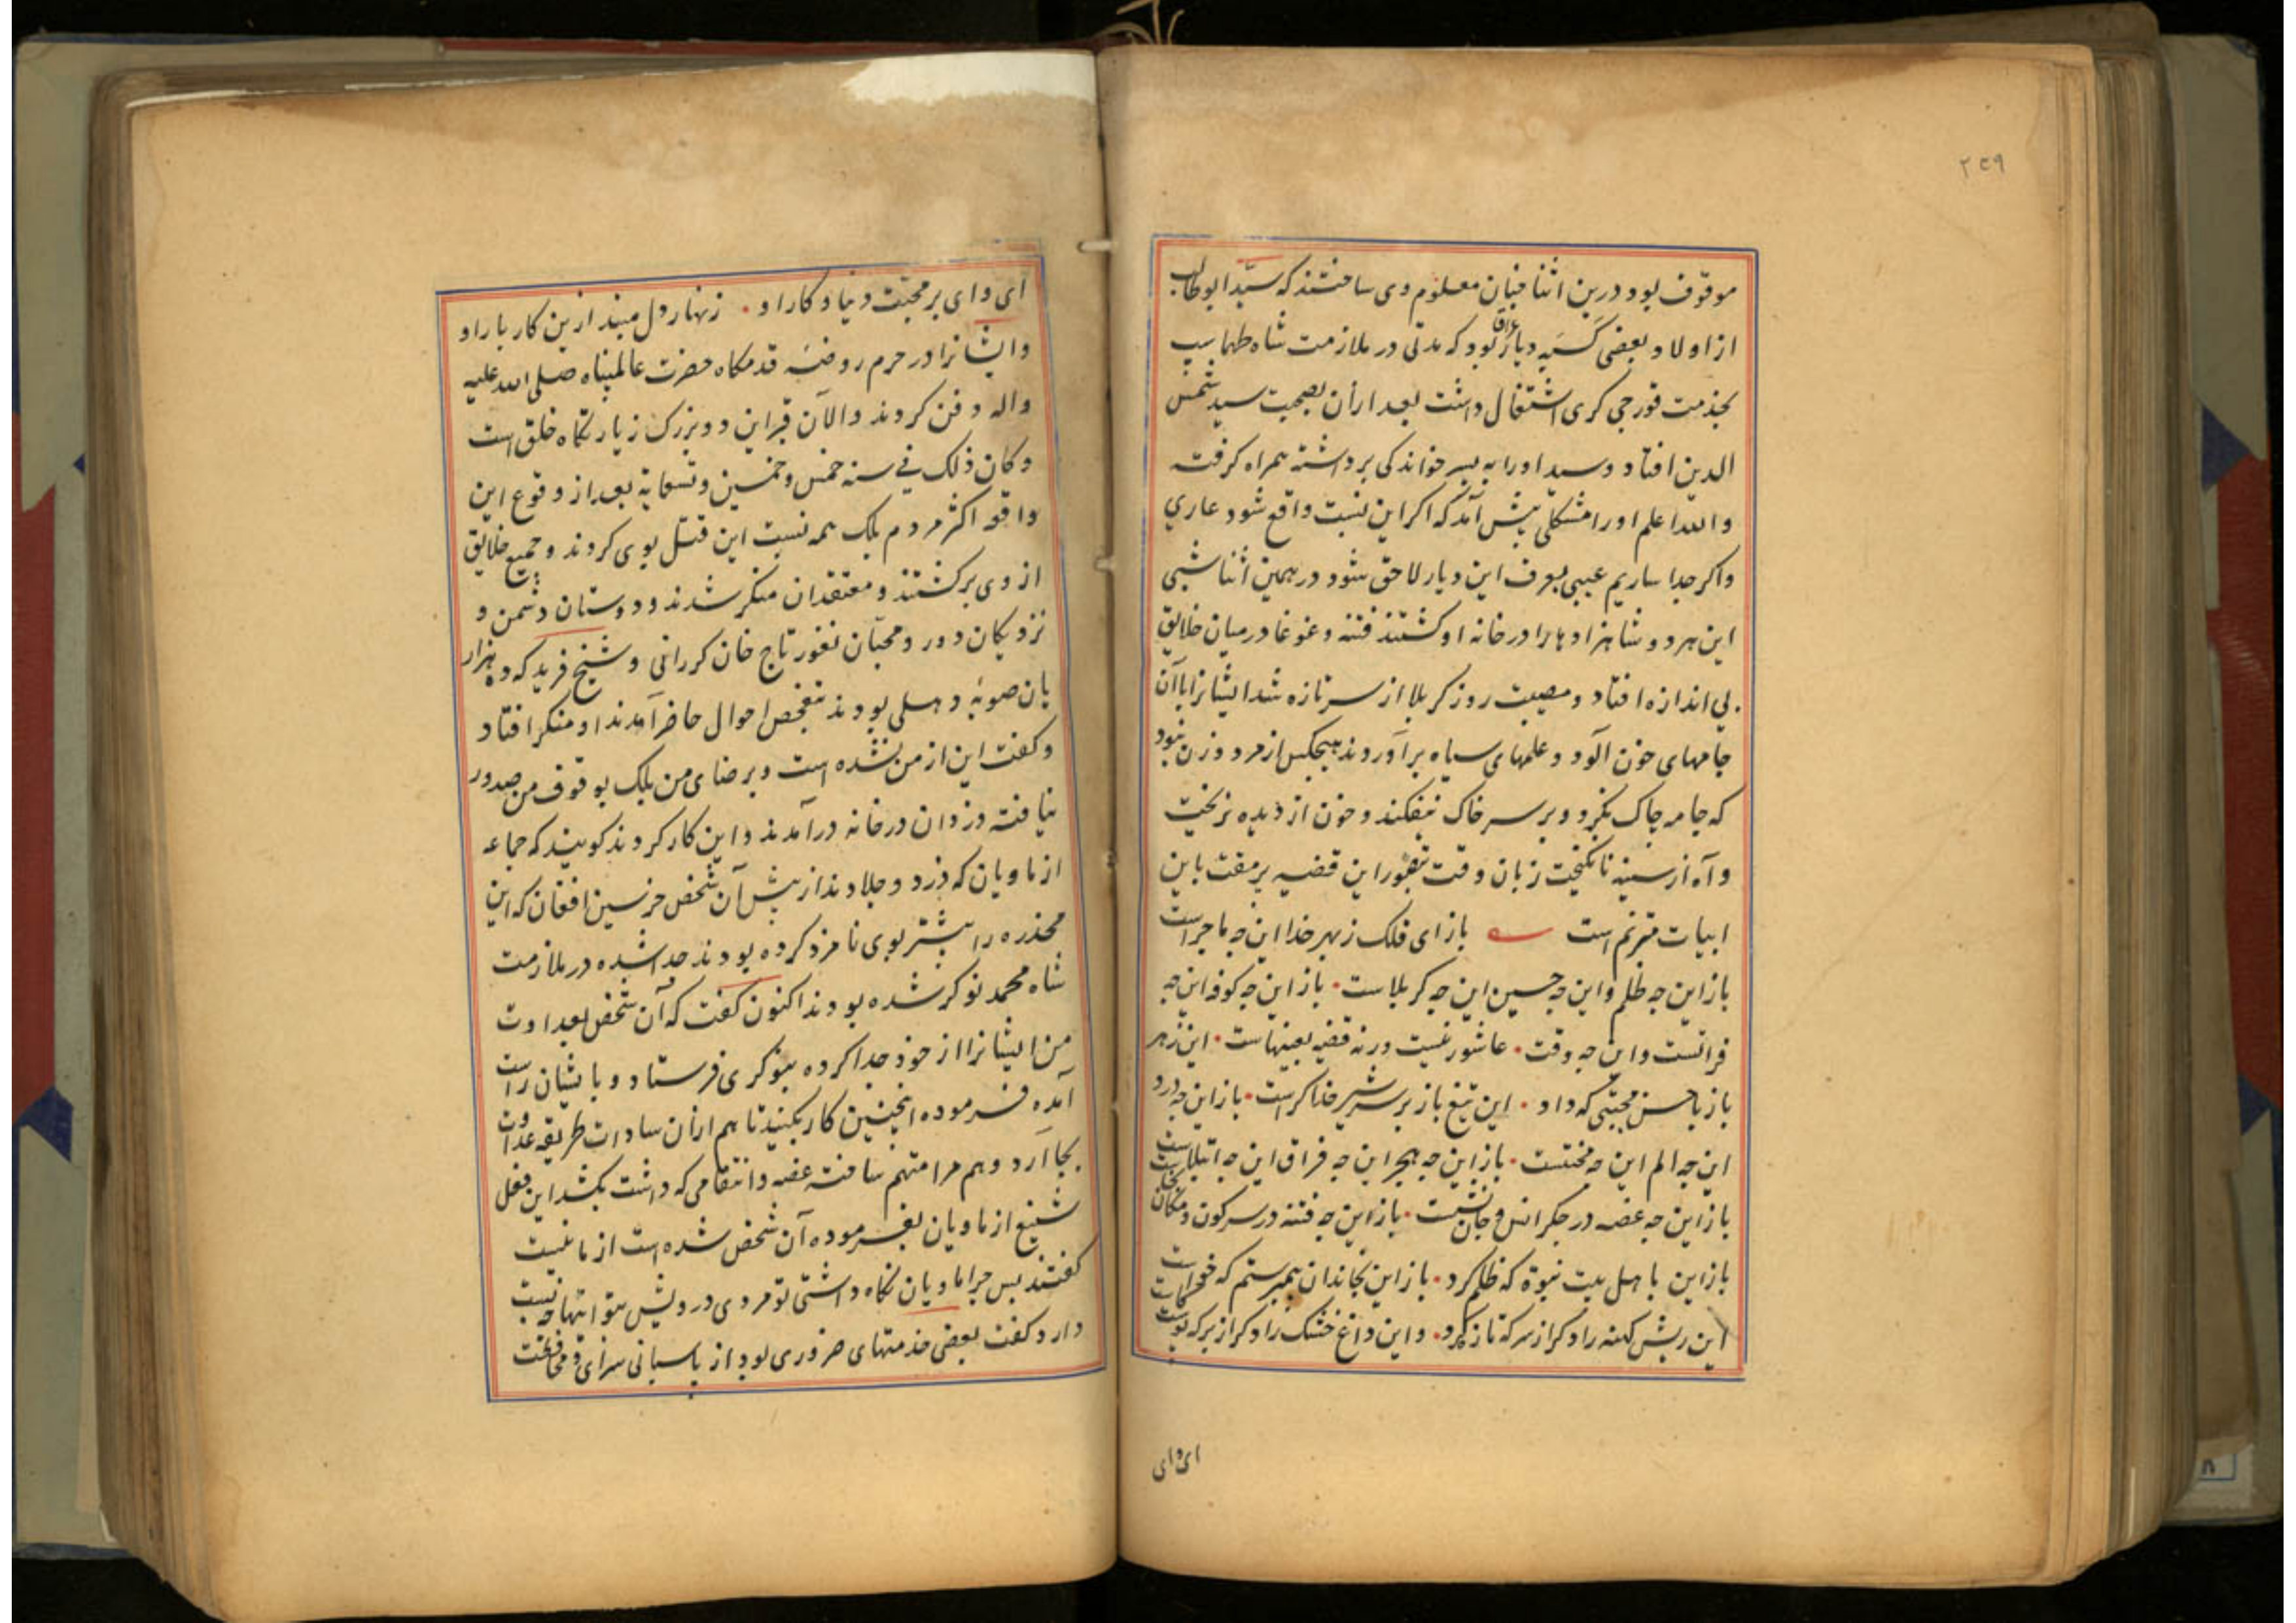 ۲۳۹
موقوف بود درین اثنا فتان معلوم وی ساختند که سید ابوطالب
از اولاد بعضی دیار عراق بود که مدتی در ملازمت شاه طهماسپ
بخدمت قورچی کری اشتغال داشت بعد ازان بصحبت سید شمس
الدین افتاد و سید او را به پسر خواندکی برداشته همراه کرفت
والله اعلم او را مشکلی پیش آمد که اکر این نسبت واقع شود عاری
واکر جدا سازیم عیبی بعرف این دیار لاحق شود در همین اثنا شبی
این هر دو شاهزادها را در خانه او کشتند فتنه و غوغا در میان خلایق
بی اندازه افتاد و مصیبت روز کربلا از سر تازه شد ایشانرا باآن
جامهای خون آلود و علمهای سیاه برآوردند هیچکس از مرد و زن نبود
که جامه چاک نکرد و بر سر خاک نیفکند و خون از دیده نریخت
و آه از سینه زبان وقت این قضیه باین
ابیات مترنم است باز ای فلک ز بهر خدا این چه ماجراست
باز این چه ظلم و این چه حسین این چه کربلاست باز این چه کوفه این چه
فراتست و این چه وقت عاشور نیست ورنه قضیه بعینهاست این زهر
باز با حسن مجتبی که داد این تیغ باز بر سر شیر خدا کراست باز این چه درد
این چه الم این چه محنتست باز این چه هجر این چه فراق این چه ابتلاست
باز این چه غصه در جکر انس و جان نشست باز این چه فتنه در سر کون و مکان بخاست
باز این باهل بیت نبوة که ظلم کرد باز این بخاندان پیمبر ستم که خواست
این ریش کهنه را دکر از سر که تازه کرد و این داغ خشک را دکر از بر که پوست
ای وای
ای وای بر محبت دنیا و کار او زنهار دل مبند ازین کار بار او
وایشانرا در حرم روضهٔ قدمکاه حضرت عالمپناه صلی الله علیه
واله دفن کردند والآن قبر این دو بزرک زیارتکاه خلق است
وکان ذلک فی سنه خمس وخمسین وتسعمایة بعد از وقوع این
واقعه اکثر مردم بلک همه نسبت این قتل بوی کردند و جمیع خلایق
از وی برکشتند و معتقدان منکر شدند و دوستان دشمن و
نزدیکان دور و محبان نفور تاج خان کررانی و شیخ فرید که ده هزار
یان صوبهٔ دهلی بودند بتفحص احوال حاضر آمدند او منکر افتاد
و کفت این از من نشده است و برضای من بلک بوقوف من صدور
نیافته دزدان در خانه درآمدند و این کار کردند کویند که جماعه
از ماویان که دزد و جلادند از پیش آن شخص افغان که این
مخدره را پیشتر بوی نامزد کرده بودند جدا شده در ملازمت
شاه محمد نوکر شده بودند اکنون کفت که آن شخص بعداوت
من ایشانرا از خود جدا کرده بنوکری فرستاد و با ایشان راست
آمده فرموده اینچنین کار بکنید تا هم ازان سادات طریقه عداوت
بجا آرد و هم مرا متهم ساخته غصه و انتقامی که داشت بکشد این فعل
شنیع از ماویان بفرموده آن شخص شده است از ما نیست
کفتند پس چرا ماویان نکاه داشتی تو مردی درویش بتو اینها چه نسبت
دارد کفت بعضی خدمتهای ضروری بود از پاسبانی سرای و محافظت